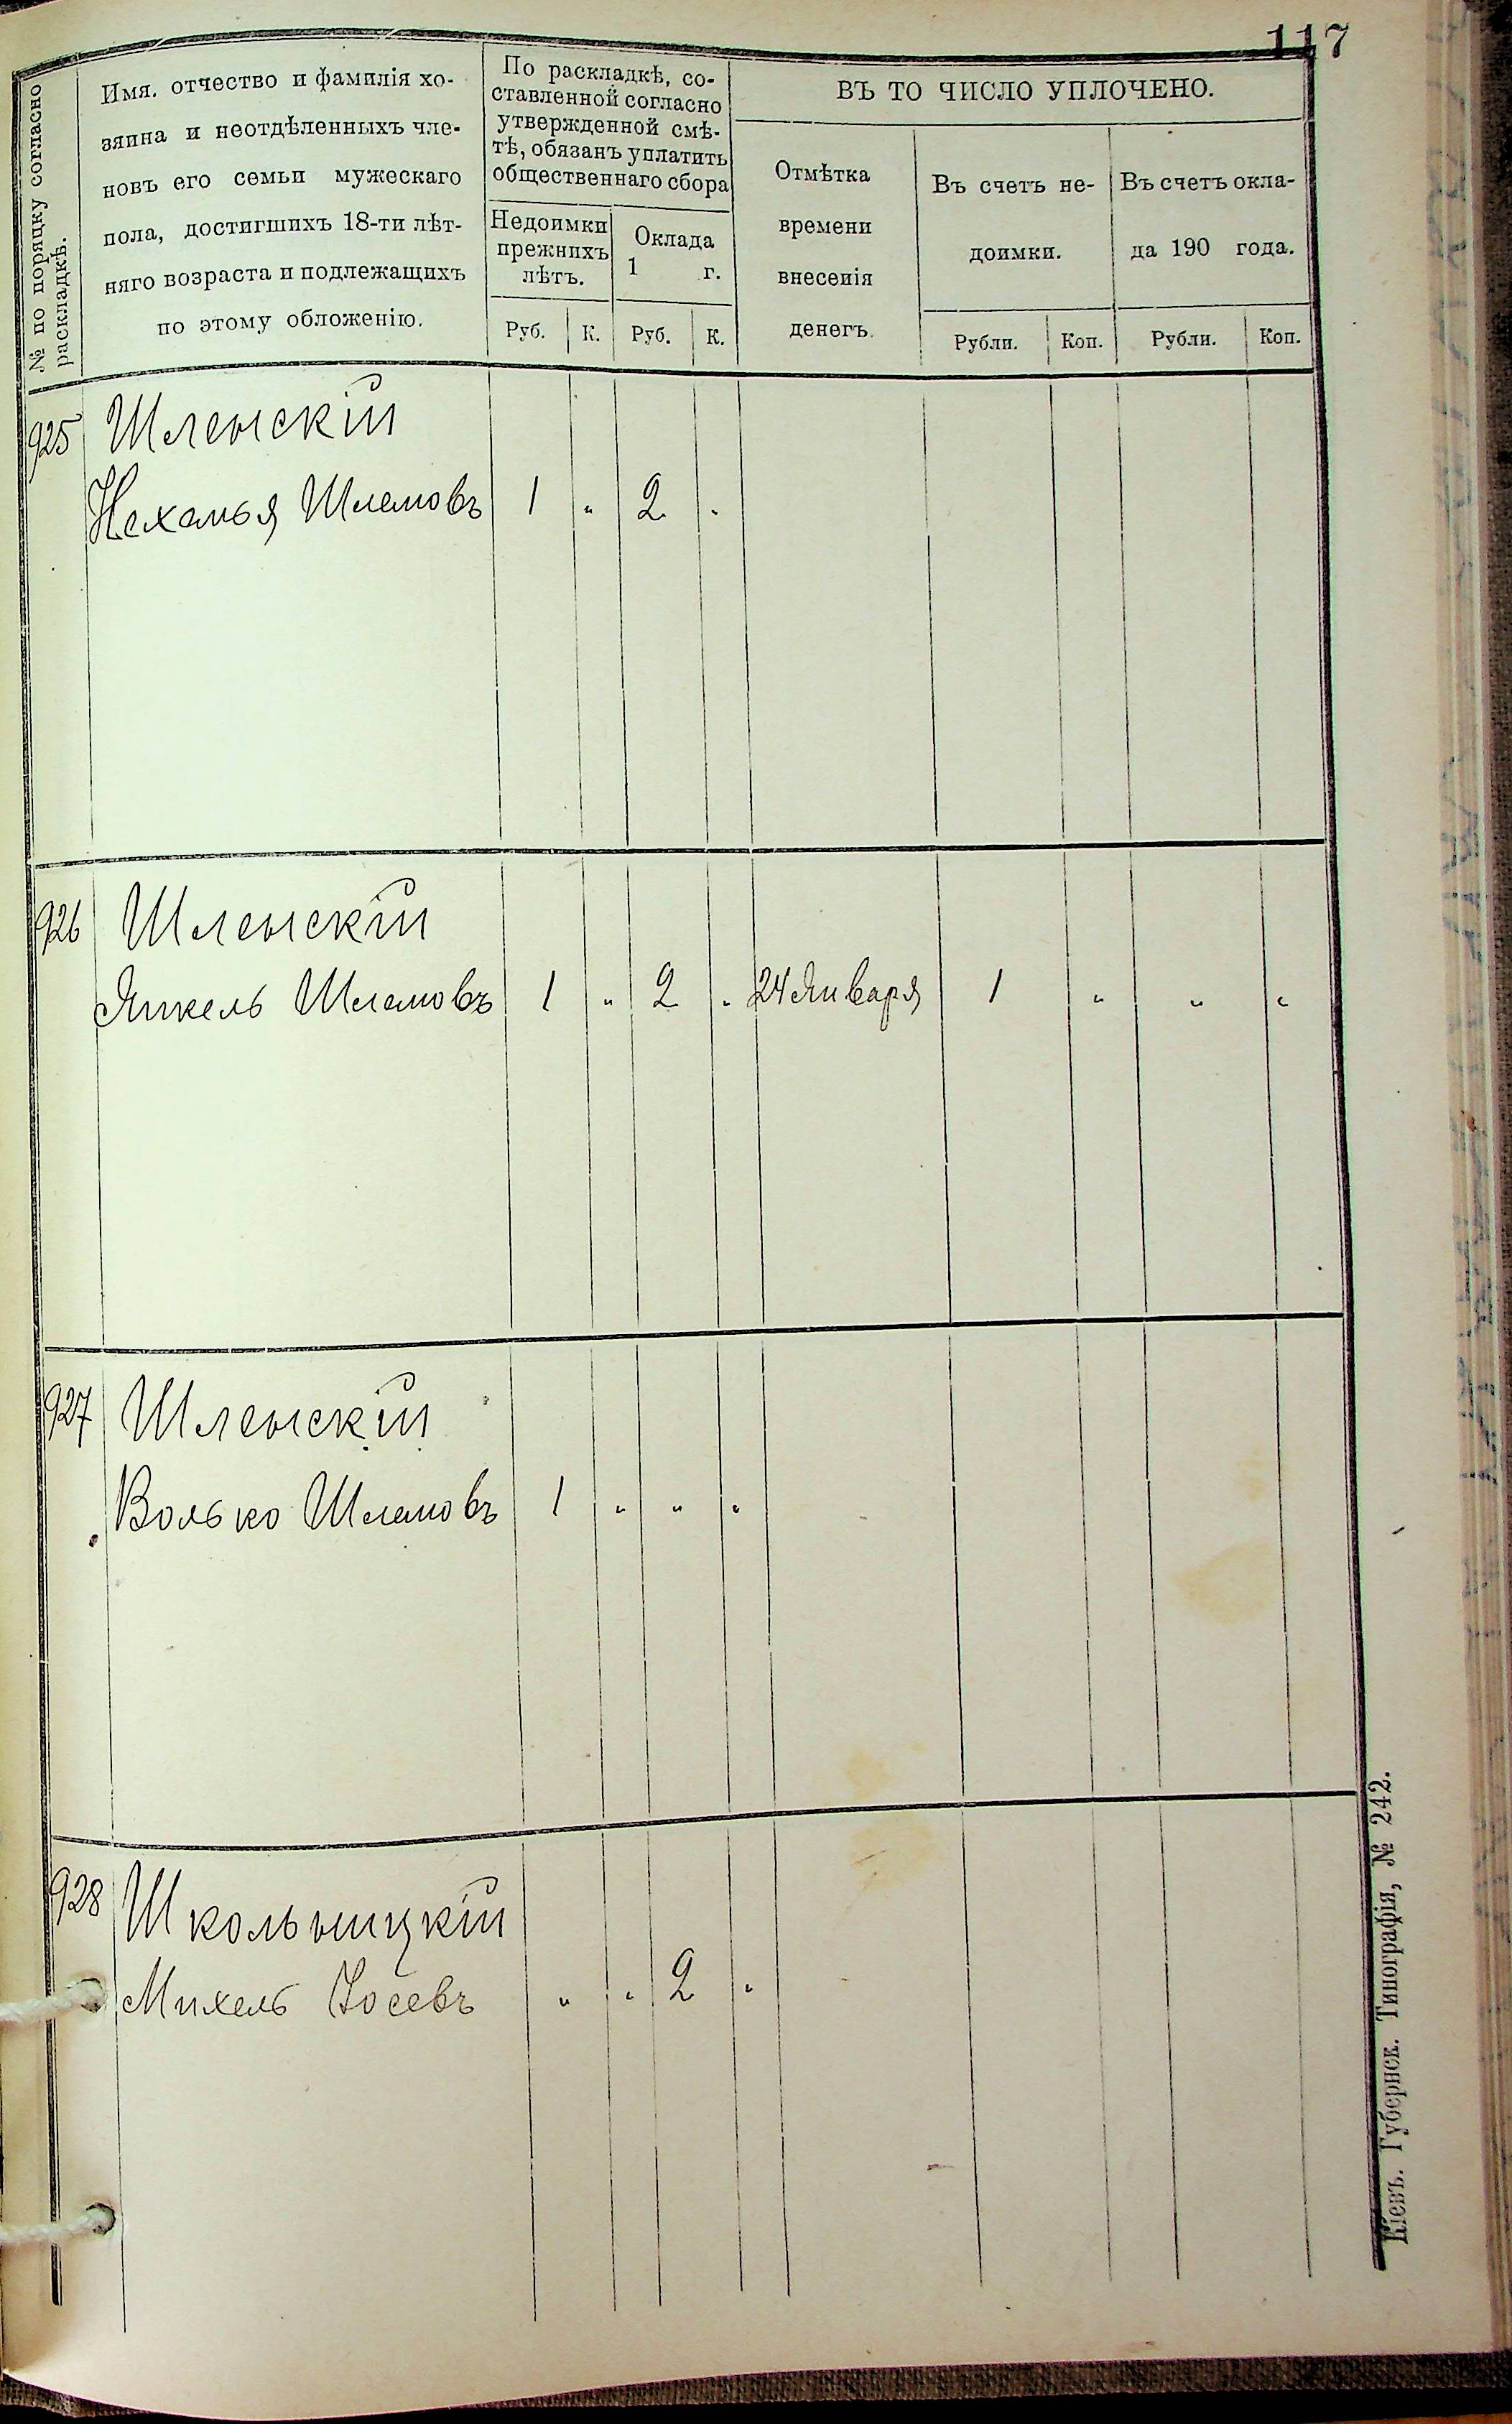 117
№ по порядку согласно
раскладкѣ.
Имя, отчество и фамилія хо-
зяина и неотдѣленныхъ чле-
новъ его семьи мужескаго
пола, достигшихъ 18-ти лѣт-
няго возраста и подлежащихъ
по этому обложенію.
По раскладкѣ, со-
ставленной согласно
утвержденной смѣ-
тѣ, обязанъ уплатить
общественнаго сбора
Недоимки
прежнихъ
лѣтъ.
Оклада
1 г.
Руб. К. Руб. К.
ВЪ ТО ЧИСЛО УПЛОЧЕНО.
Отмѣтка
времени
внесенія
денегъ.
Въ счетъ не-
доимки.
Въ счетъ окла-
да 190 года.
Рубли. Коп. Рубли. Коп.
925 Шленскій
Нехамья Шлемовъ 1 " 2 "
926 Шленскій
Янкель Шлемовъ 1 " 2 " 24 Января 1 " " "
927 Шленскій
Волько Шлемовъ 1 " " "
928 Школьницкій
Михель Іосевъ " " 2 "
Кіевъ. Губернск. Типографія, № 242.